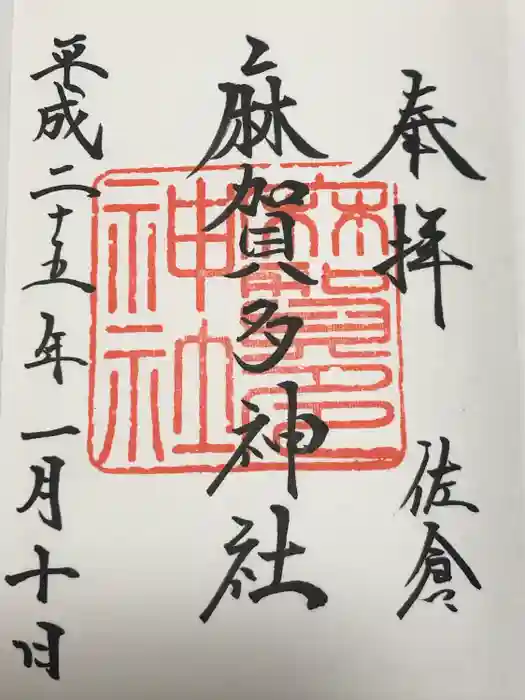 奉拝 佐倉
麻賀多神社
平成二十五年一月十日
麻賀多
神社